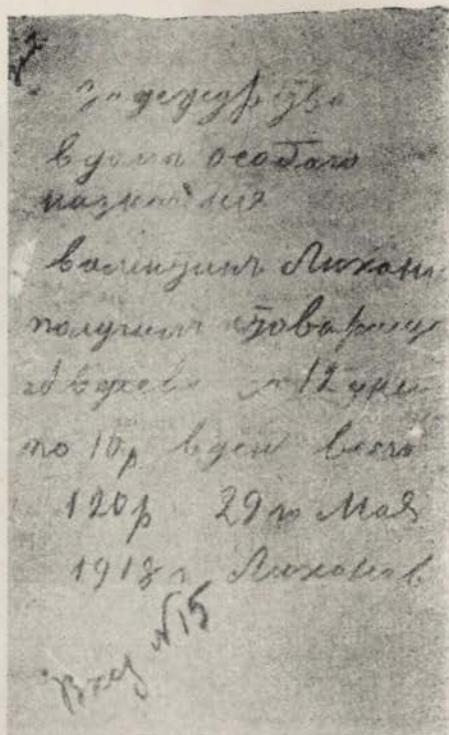 За дедедрство
в дома особаго
назначения
валинтин Лиханов
получил товарищ
авдеева за 12 дней
по 10р в ден всего
120р 29 го Мая
1918 г Лиханов
Вход №15